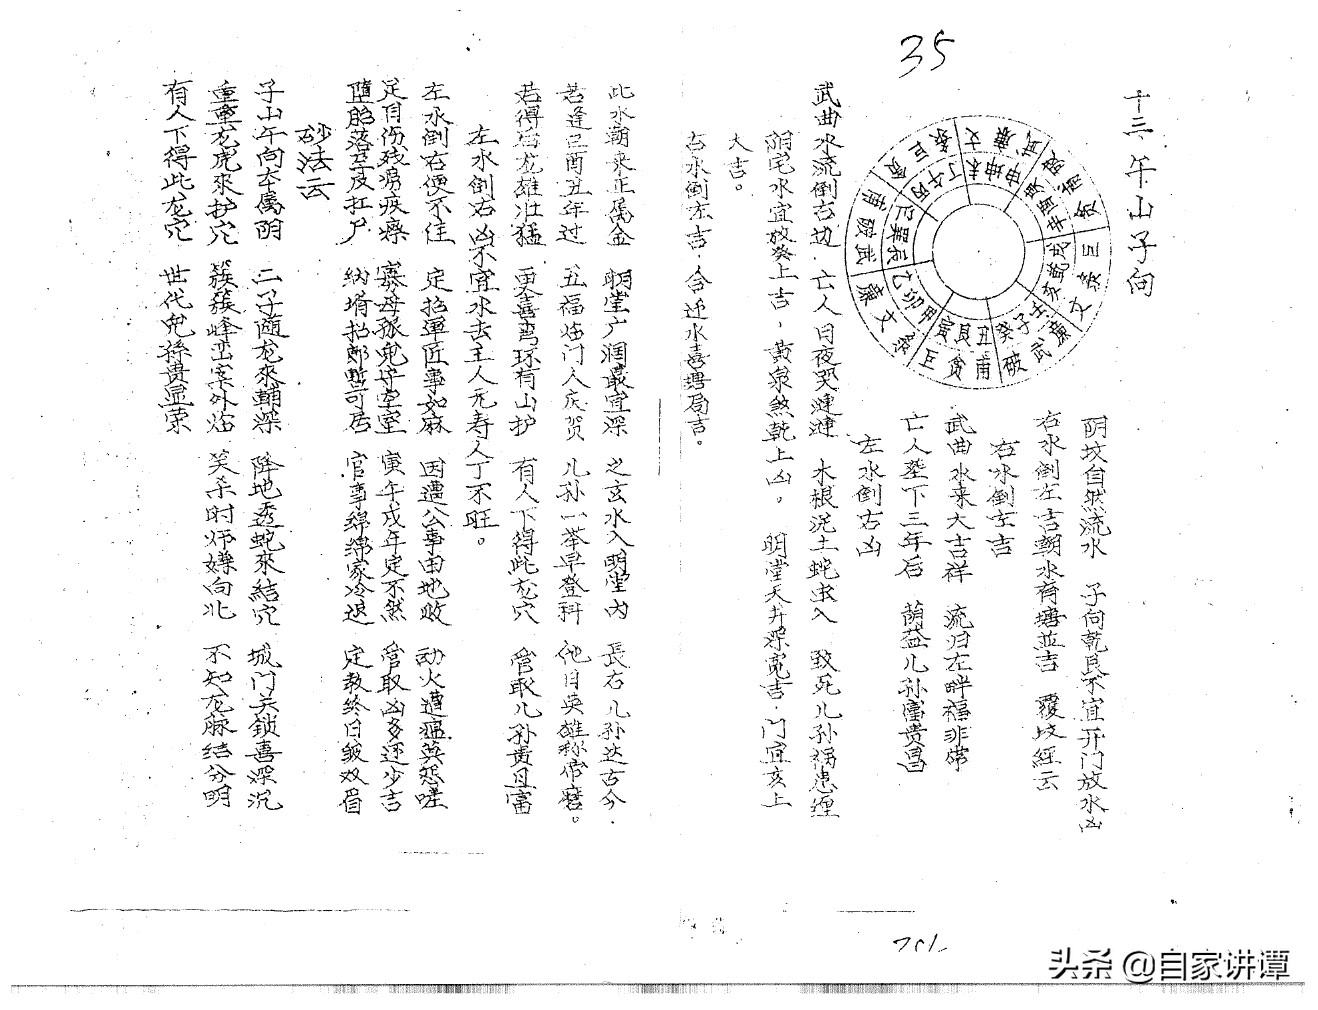 35
十三 午山子向
阴坟自然流水 子向乾艮不宜开门放水凶
右水倒左吉朝水有塘並吉 覆坟经云
右水倒左吉
武曲水来大吉祥 流归左畔福非常
亡人塟下三年后 荫益儿孙富贵昌
左水倒右凶
武曲水流倒右边 亡人日夜哭涟涟 木根洸土蛇虫入 致死儿孙祸患缠
阴宅水宜放癸上吉，黄泉煞乾上凶。 明堂天井深宽吉，门宜亥上
大吉。
右水倒左吉，合迁水喜塘局吉。
此水朝来正属金 明堂广润最宜深 之玄水入明堂内 長右儿孙达古今，
若逢己酉丑年过 五福临门人庆贺 儿孙一举早登科 他日英雄称倌磨。
若得后龙雄壮猛 更喜弯环有山护 有人下得此龙穴 管取儿孙贵且富
左水倒右凶不宜水去主人无寿人丁不旺。
左水倒右便不佳 定招軍匠事如麻 因遭公事由地败 动火遭瘟莫怨嗟
足目伤残痨疾瘵 寡母孤兒守空室 寅午戌年定不然 管取凶多还少吉
堕胎落孕及扛尸 納壻招郎暫可居 官事绵绵家冷退 定教终日皱双眉
玅法云
子山午向本属阴 二子随龙來輔深 降地透蛇來結穴 城门关锁喜深沉
重重龙虎來护穴 簇簇峰峦案外站 笑杀时师嫌向北 不知龙脉结分明
有人下得此龙穴 世代兒孫贵显荣
头条 @自家讲谭